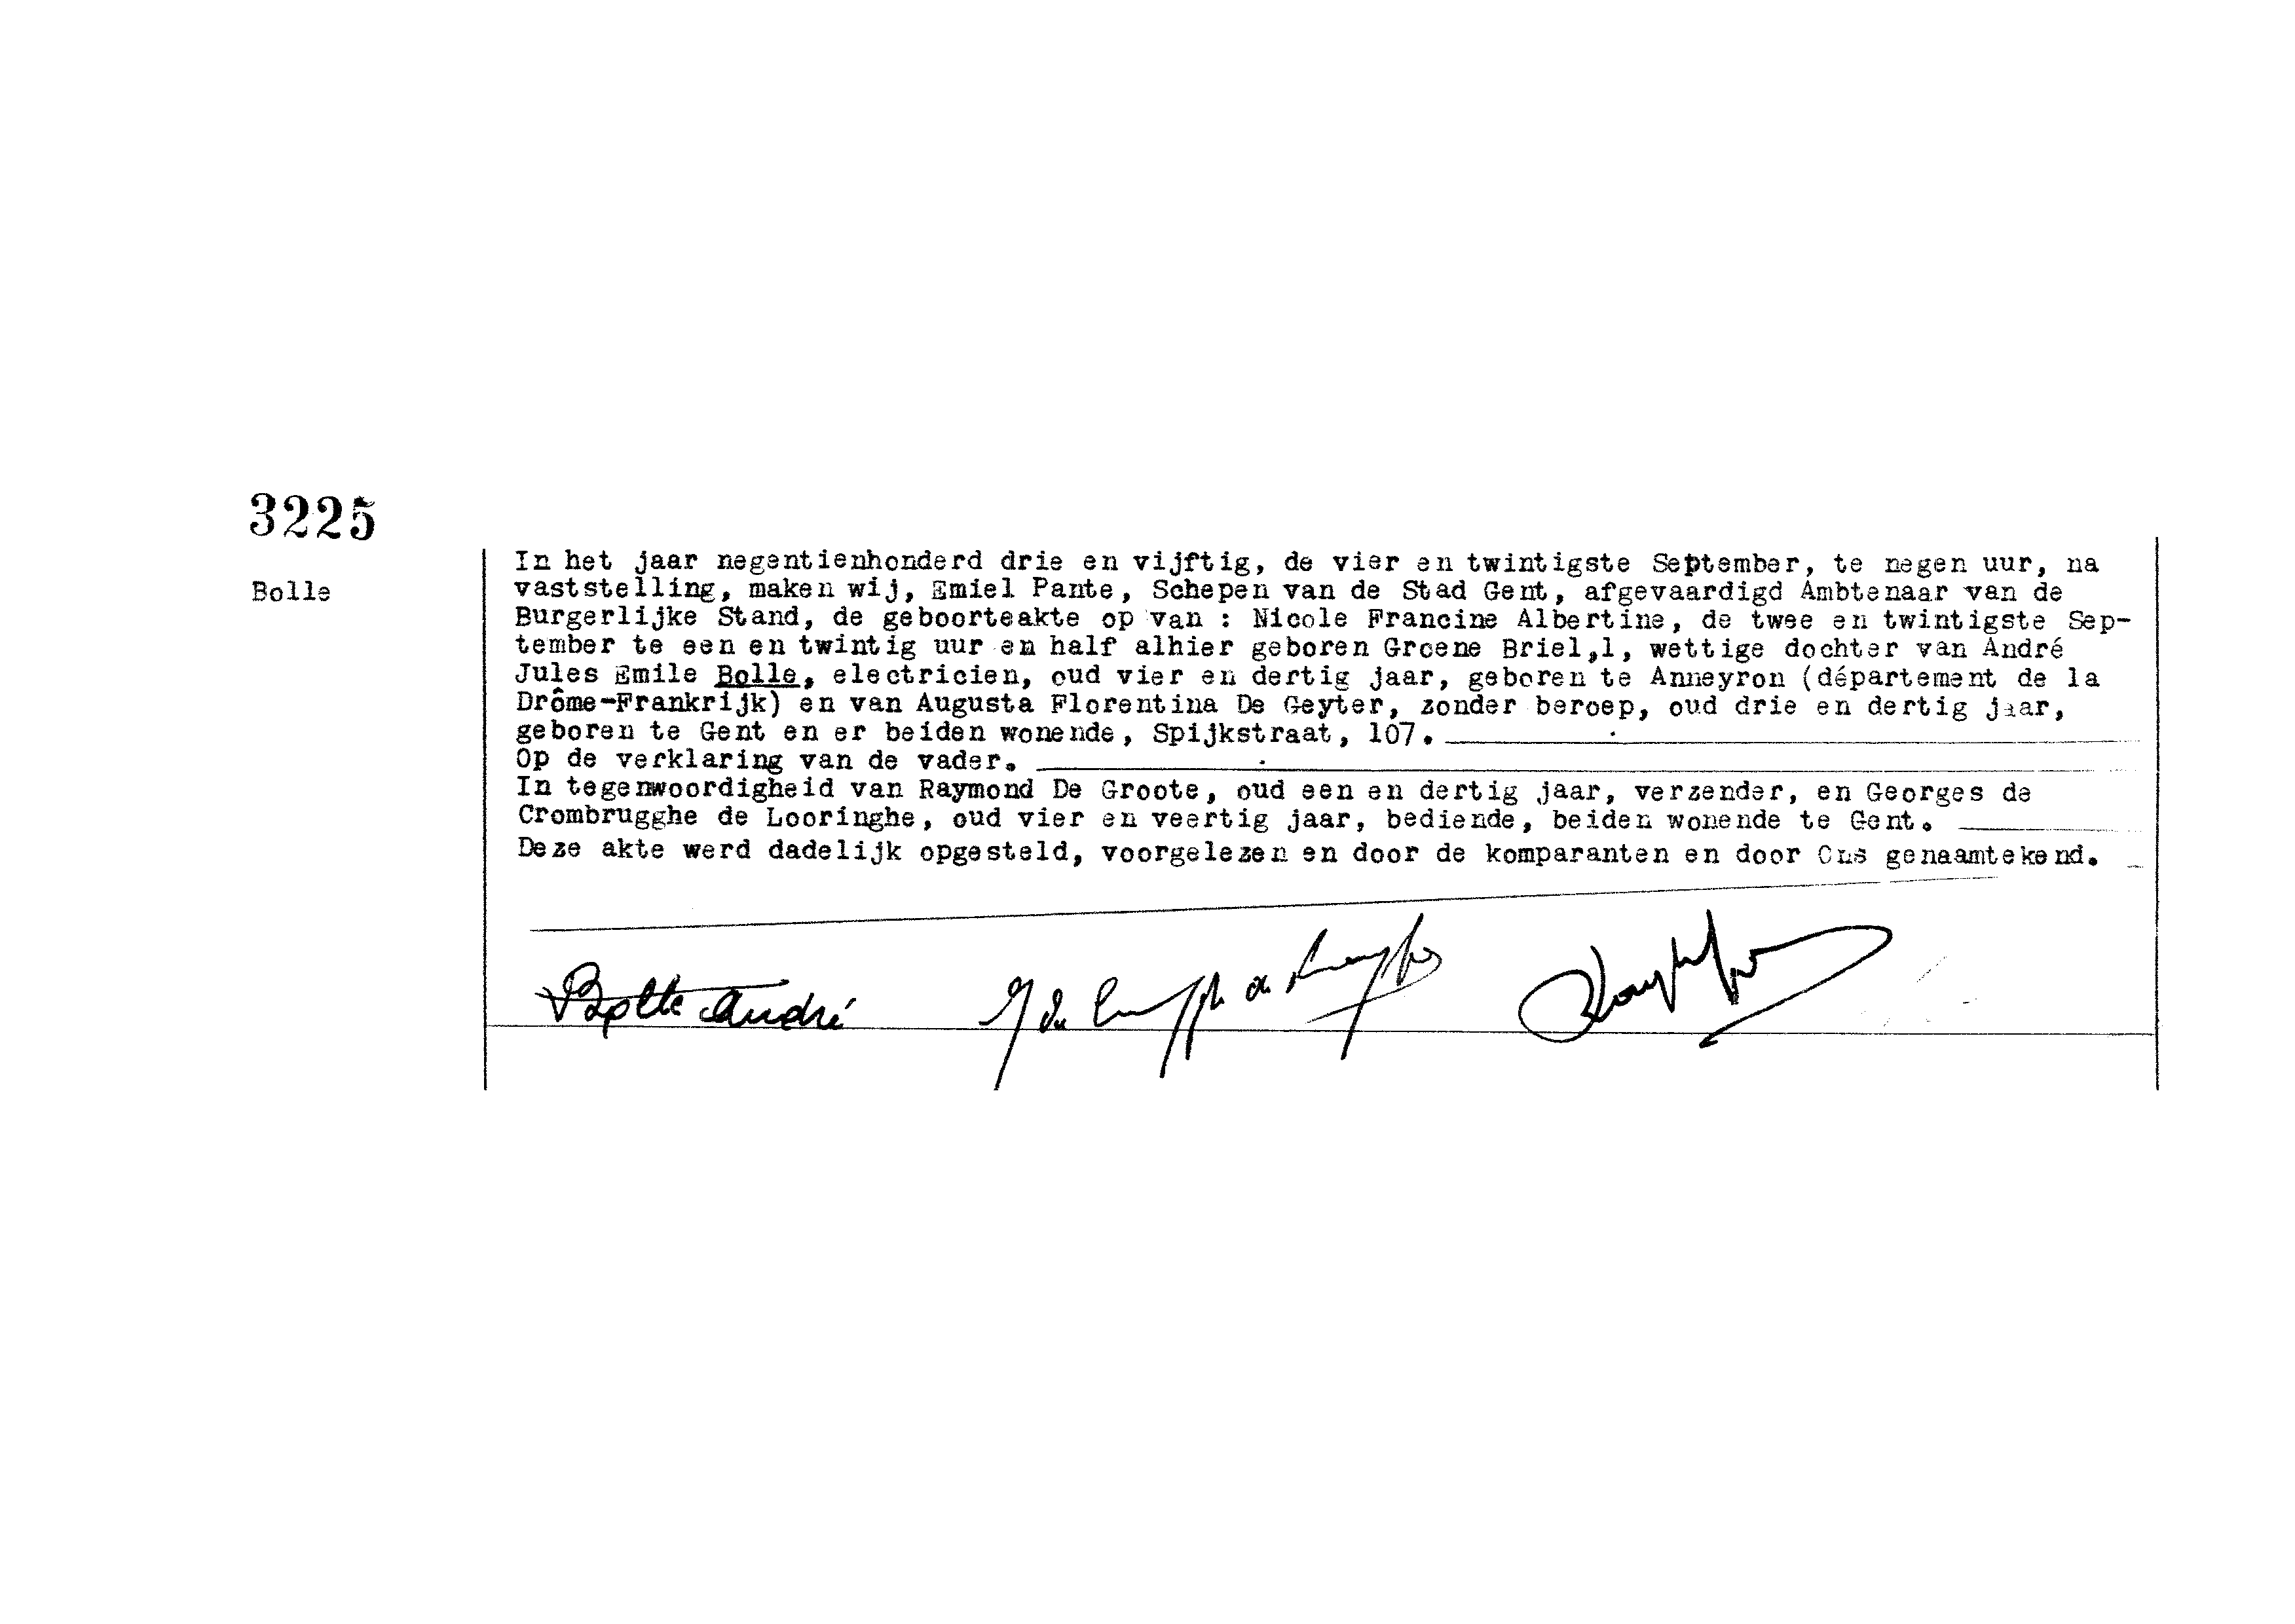 3225
Bolle
In het jaar negentienhonderd drie en vijftig, de vier en twintigste September, te negen uur, na
vaststelling, maken wij, Emiel Pante, Schepen van de Stad Gent, afgevaardigd Ambtenaar van de
Burgerlijke Stand, de geboorteakte op van : Nicole Francine Albertine, de twee en twintigste Sep-
tember te een en twintig uur en half alhier geboren Groene Briel,1, wettige dochter van André
Jules Emile Bolle, electricien, oud vier en dertig jaar, geboren te Anneyron (département de la
Drôme-Frankrijk) en van Augusta Florentina De Geyter, zonder beroep, oud drie en dertig jaar,
geboren te Gent en er beiden wonende, Spijkstraat, 107.
Op de verklaring van de vader.
In tegenwoordigheid van Raymond De Groote, oud een en dertig jaar, verzender, en Georges de
Crombrugghe de Looringhe, oud vier en veertig jaar, bediende, beiden wonende te Gent.
Deze akte werd dadelijk opgesteld, voorgelezen en door de komparanten en door Ons genaamtekend.
Bolle André